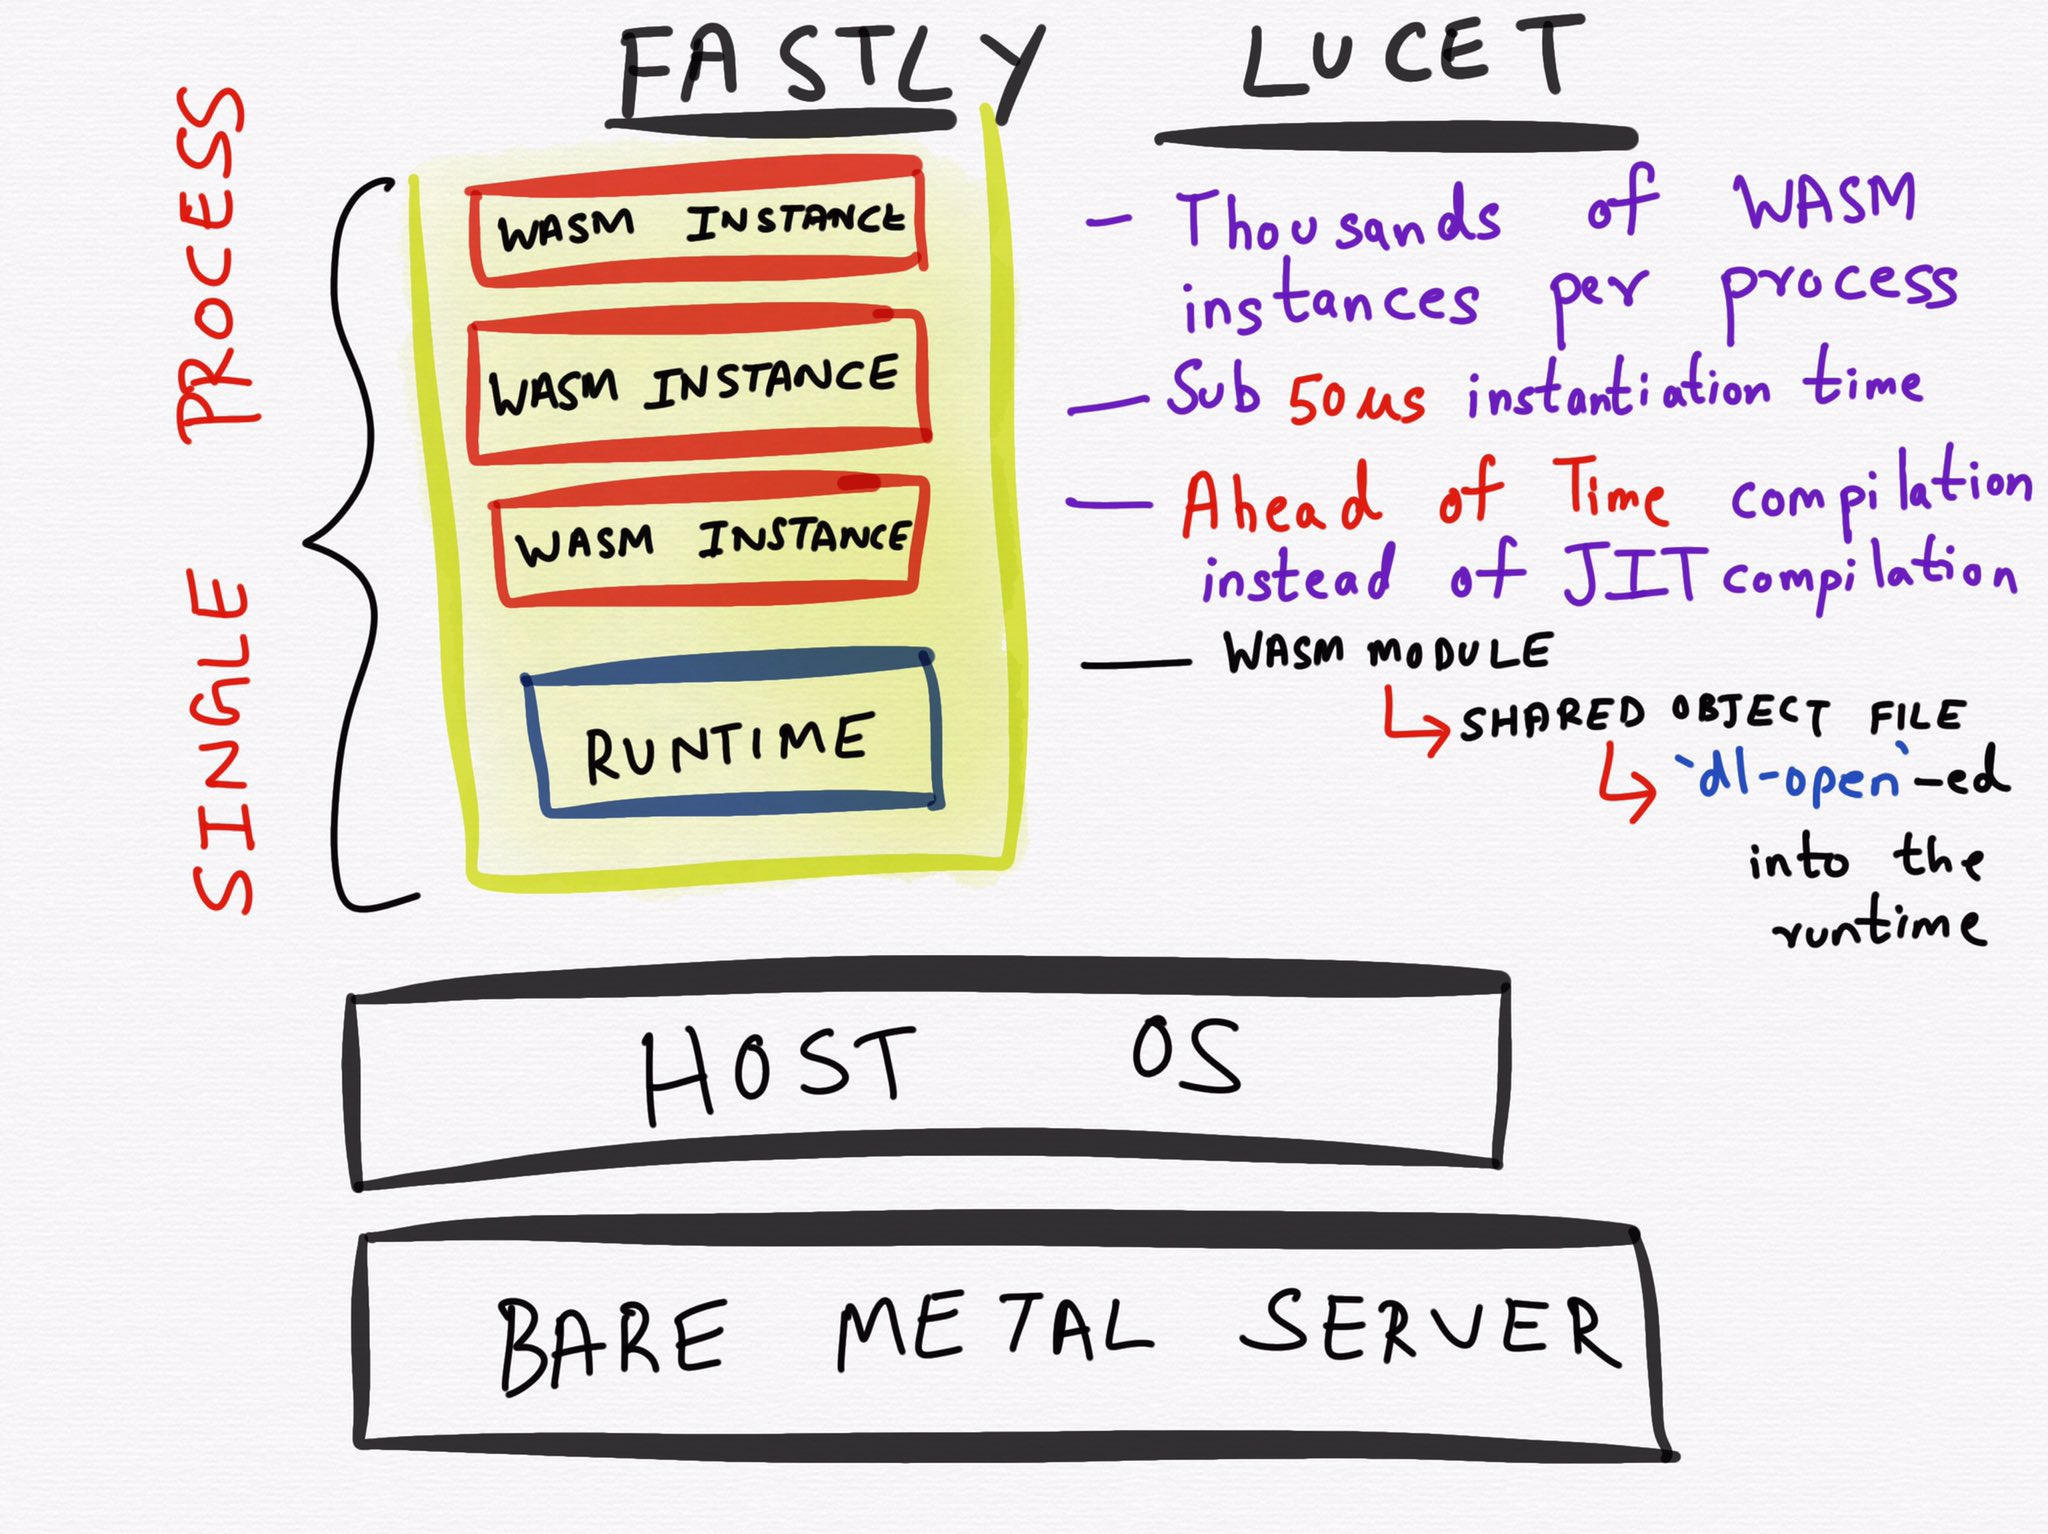 FASTLY LUCET
SINGLE PROCESS
WASM INSTANCE
WASM INSTANCE
WASM INSTANCE
RUNTIME
- Thousands of WASM
instances per process
- Sub 50us instantiation time
- Ahead of Time compilation
instead of JIT compilation
- WASM MODULE
↳ SHARED OBJECT FILE
↳ `dl-open`-ed
into the
runtime
HOST OS
BARE METAL SERVER